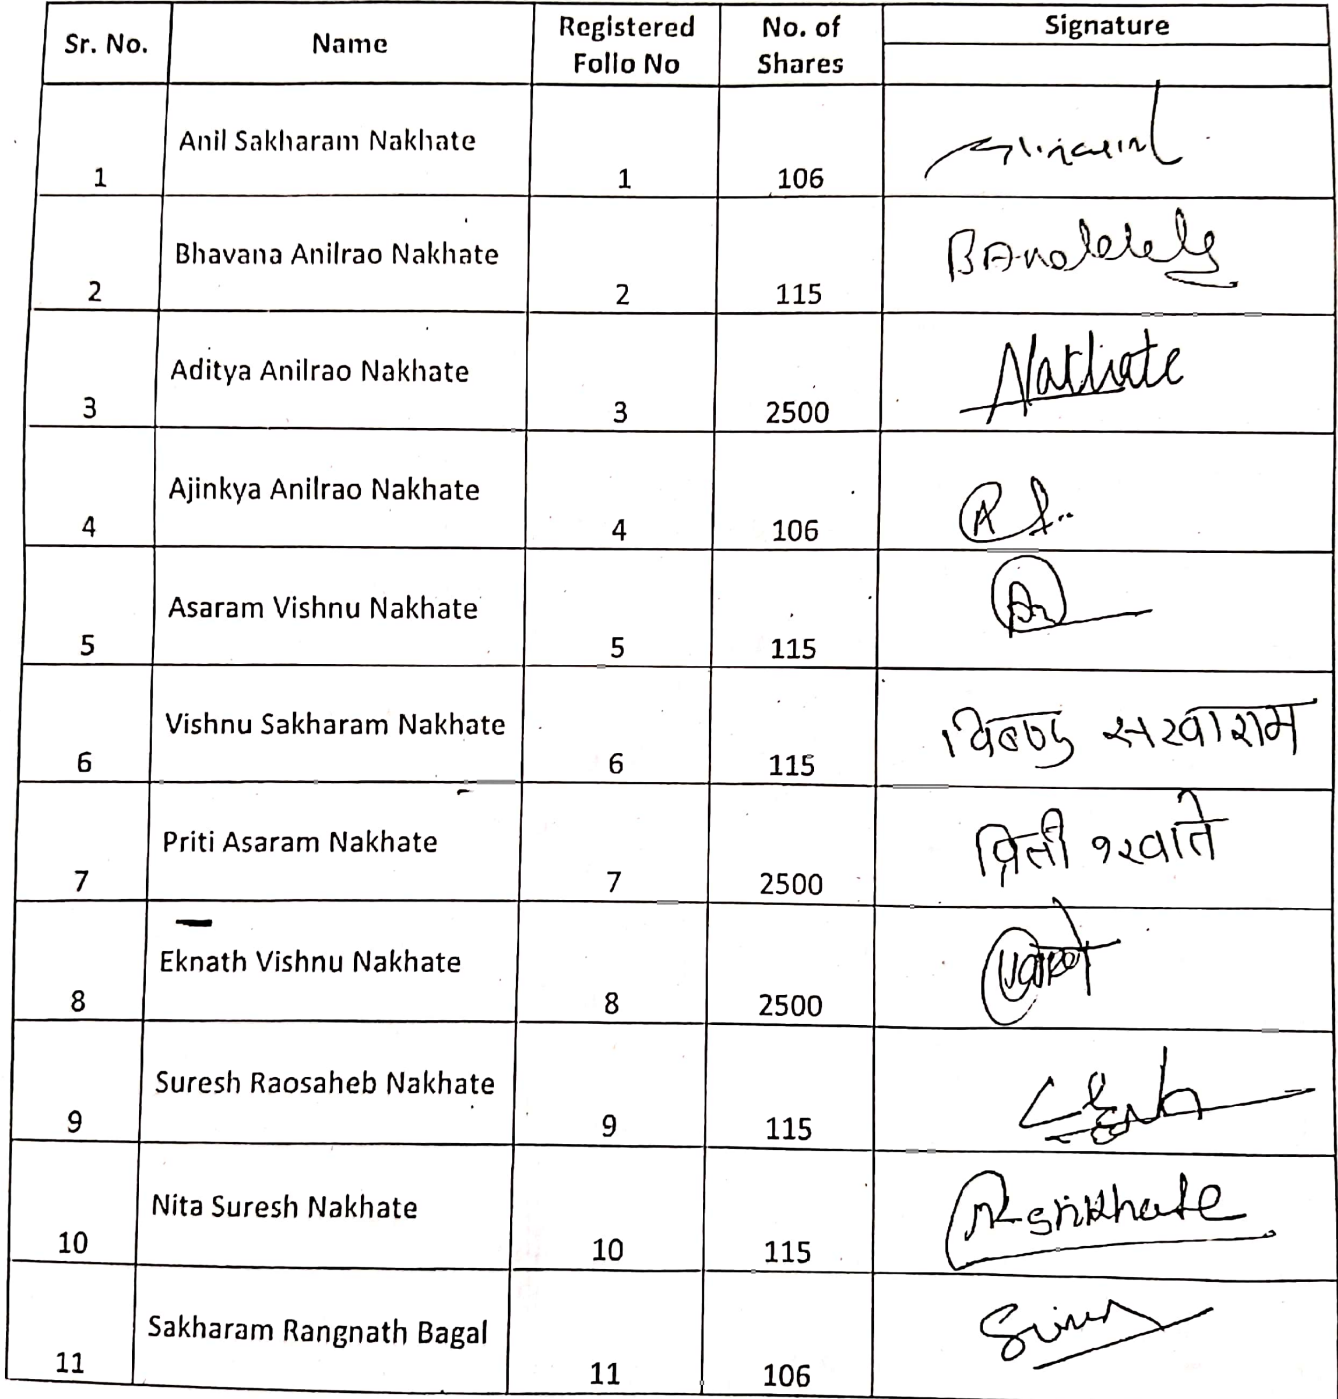 Sr. No. Name Registered Folio No No. of Shares Signature
1 Anil Sakharam Nakhate 1 106
2 Bhavana Anilrao Nakhate 2 115
3 Aditya Anilrao Nakhate 3 2500 Nakhate
4 Ajinkya Anilrao Nakhate 4 106
5 Asaram Vishnu Nakhate 5 115
6 Vishnu Sakharam Nakhate 6 115 विष्णु सखाराम
7 Priti Asaram Nakhate 7 2500 प्रिती नखाते
8 Eknath Vishnu Nakhate 8 2500
9 Suresh Raosaheb Nakhate 9 115
10 Nita Suresh Nakhate 10 115
11 Sakharam Rangnath Bagal 11 106